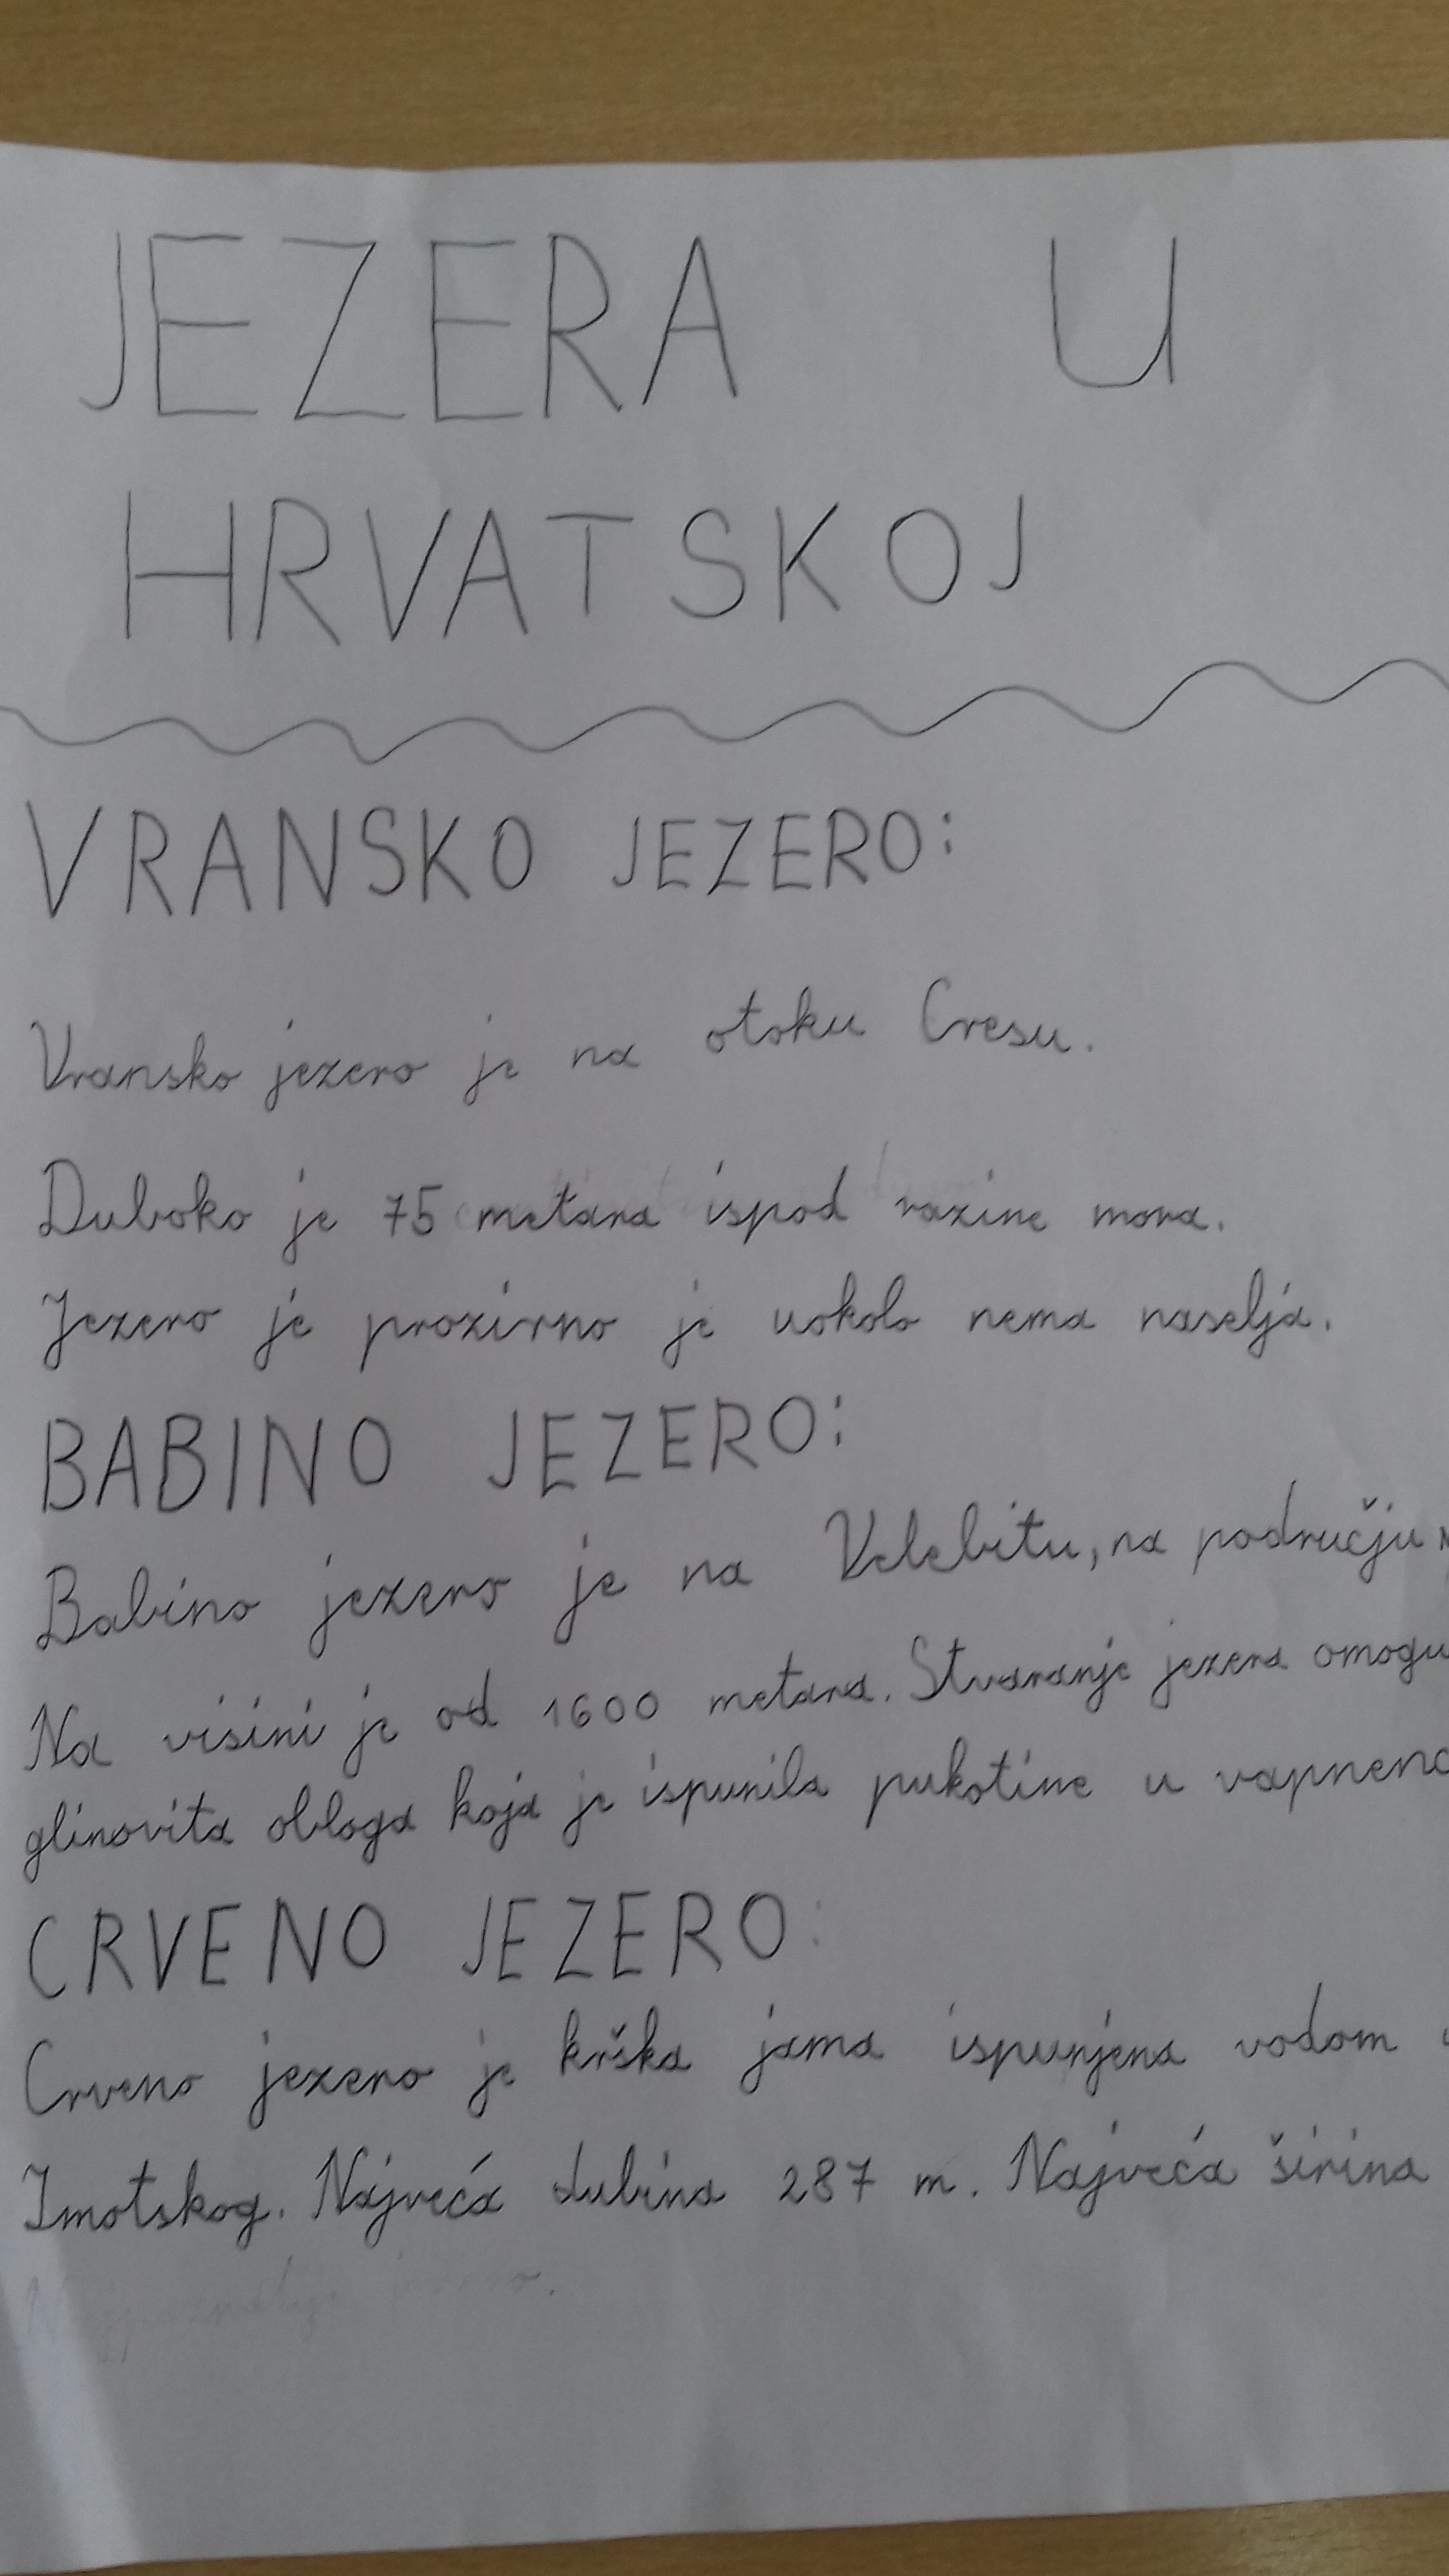 JEZERA U
HRVATSKOJ
VRANSKO JEZERO:
Vransko jezero je na otoku Cresu.
Duboko je 75 metara ispod razine mora.
Jezero je prozirno je uokolo nema naselja.
BABINO JEZERO:
Babino jezero je na Velebitu, na području
Na visini je od 1600 metara. Stvaranje jezera omogu
glinovita obloga koja je ispunila pukotine u vapneno
CRVENO JEZERO:
Crveno jezero je krška jama ispunjena vodom
Imotskog. Najveća dubina 287 m. Najveća širina